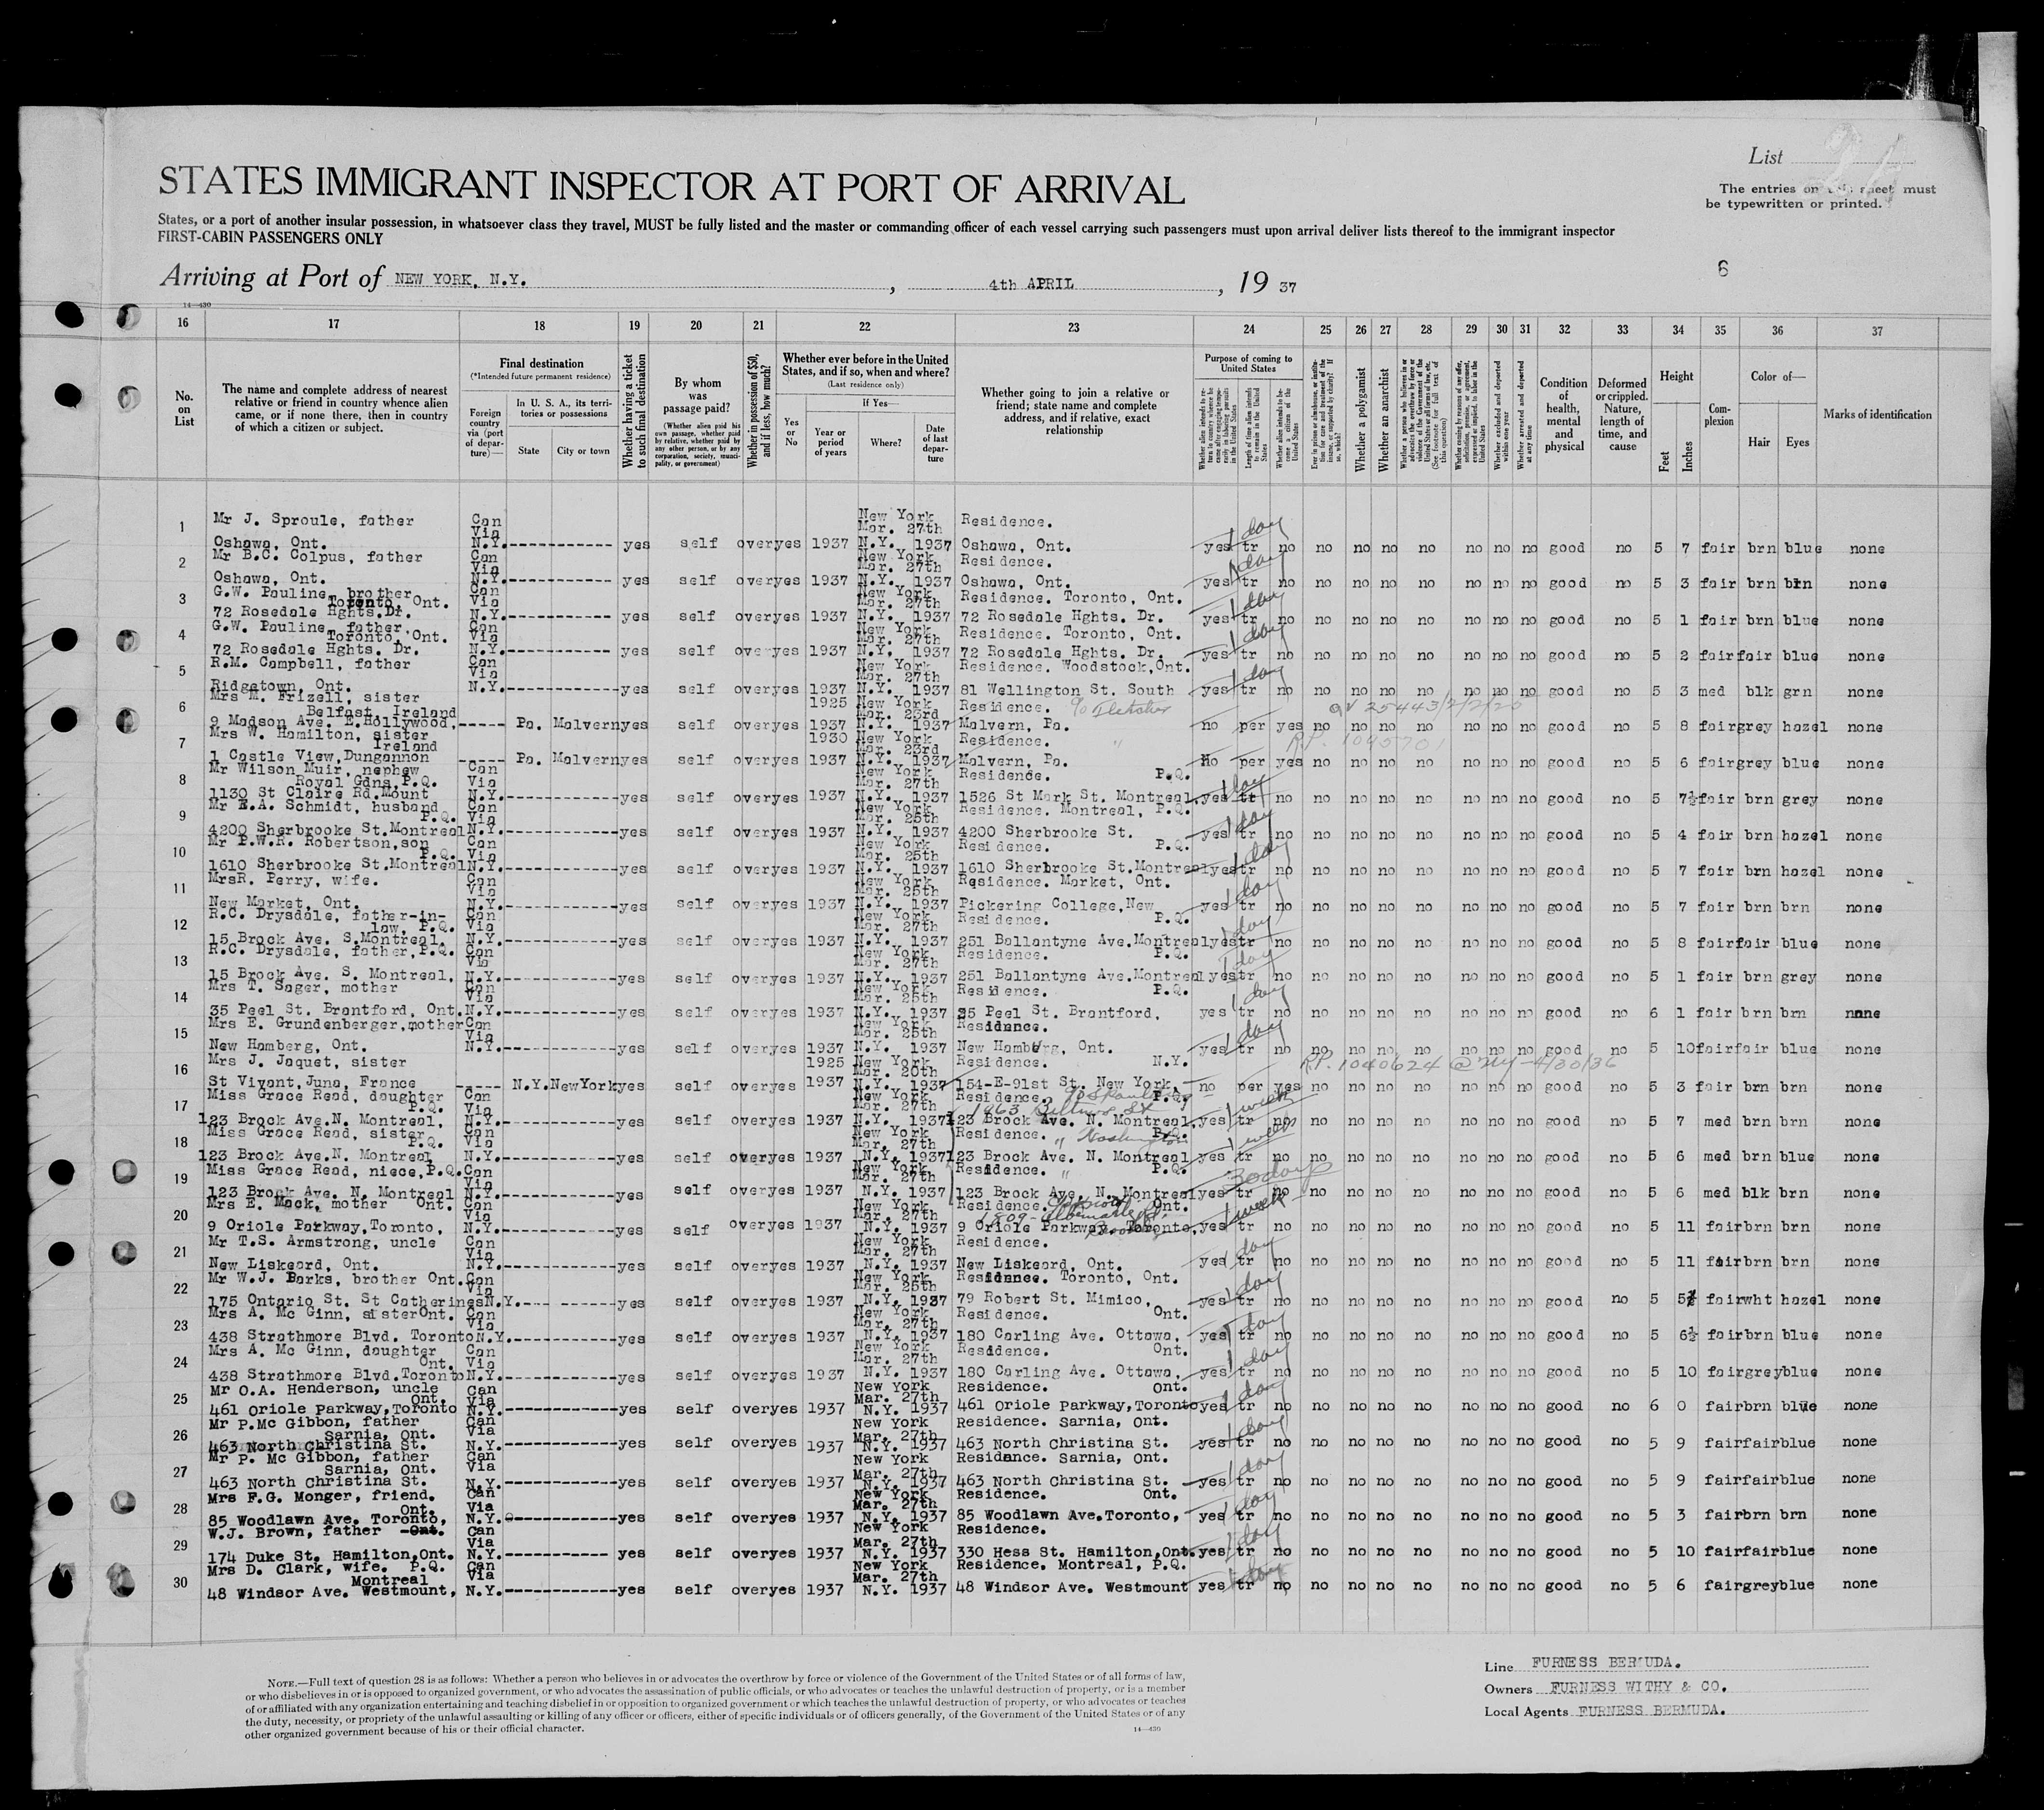 List
The entries on this sheet must
be typewritten or printed.
STATES IMMIGRANT INSPECTOR AT PORT OF ARRIVAL
States, or a port of another insular possession, in whatsoever class they travel, MUST be fully listed and the master or commanding officer of each vessel carrying such passengers must upon arrival deliver lists thereof to the immigrant inspector
FIRST-CABIN PASSENGERS ONLY
6
Arriving at Port of NEW YORK, N.Y. , 4th APRIL , 19 37
14—430
16 17 18 19 20 21 22 23 24 25 26 27 28 29 30 31 32 33 34 35 36 37
No. on List
The name and complete address of nearest relative or friend in country whence alien came, or if none there, then in country of which a citizen or subject.
Final destination
(*Intended future permanent residence)
Foreign country via (port of departure)—
In U. S. A., its territories or possessions
State City or town
Whether having a ticket to such final destination
By whom was passage paid?
(Whether alien paid his own passage, whether paid by relative, whether paid by any other person, or by any corporation, society, municipality, or government)
Whether in possession of $50, and if less, how much?
Whether ever before in the United States, and if so, when and where?
(Last residence only)
If Yes—
Yes or No
Year or period of years
Where?
Date of last departure
Whether going to join a relative or friend; state name and complete address, and if relative, exact relationship
Purpose of coming to United States
Whether a polygamist
Whether an anarchist
Condition of health, mental and physical
Deformed or crippled. Nature, length of time, and cause
Height
Feet Inches
Complexion
Color of—
Hair Eyes
Marks of identification
1 Mr J. Sproule, father Can Via New York Mar. 27th Residence. 1 day
Oshawa, Ont. N.Y. yes self over yes 1937 N.Y. 1937 Oshawa, Ont. yes tr no no no no no no no no good no 5 7 fair brn blue none
2 Mr B.C. Colpus, father Can Via New York Mar. 27th Residence. 1 day
Oshawa, Ont. N.Y. yes self over yes 1937 N.Y. 1937 Oshawa, Ont. yes tr no no no no no no no no good no 5 3 fair brn brn none
3 G.W. Pauline, brother Toronto, Ont. Can Via New York Mar. 27th Residence. Toronto, Ont. 1 day
72 Rosedale Hghts. Dr. N.Y. yes self over yes 1937 N.Y. 1937 72 Rosedale Hghts. Dr. yes tr no no no no no no no no good no 5 1 fair brn blue none
4 G.W. Pauline, father, Toronto, Ont. Can Via New York Mar. 27th Residence. Toronto, Ont. 1 day
72 Rosedale Hghts. Dr. N.Y. yes self over yes 1937 N.Y. 1937 72 Rosedale Hghts. Dr. yes tr no no no no no no no no good no 5 2 fair fair blue none
5 R.M. Campbell, father Can Via New York Mar. 27th Residence. Woodstock, Ont. 1 day
Ridgetown, Ont. N.Y. yes self over yes 1937 N.Y. 1937 81 Wellington St. South yes tr no no no no no no no no good no 5 3 med blk grn none
6 Mrs M. Frizell, sister Belfast, Ireland 1925 New York Mar. 23rd Residence. c/o Fletcher
9 Madson Ave. E.Hollywood. Pa. Malvern yes self over yes 1937 N.Y. 1937 Malvern, Pa. no per yes no no no no no no no good no 5 8 fair grey hazel none
7 Mrs W. Hamilton, sister Ireland 1930 New York Mar. 23rd Residence. " R.P. 1095701
1 Castle View, Dungannon Pa. Malvern yes self over yes 1937 N.Y. 1937 Malvern, Pa. No per yes no no no no no no no good no 5 6 fair grey blue none
8 Mr Wilson Muir, nephew Royal Gdns, P.Q. Can Via New York Mar. 27th Residence. P.Q. 1 day
1130 St Claire Rd. Mount N.Y. yes self over yes 1937 N.Y. 1937 1526 St Mark St. Montreal, yes tr no no no no no no no no good no 5 7½ fair brn grey none
9 Mr E.A. Schmidt, husband P.Q. Can Via New York Mar. 25th Residence. Montreal, P.Q. 1 day
4200 Sherbrooke St. Montreal N.Y. yes self over yes 1937 N.Y. 1937 4200 Sherbrooke St. yes tr no no no no no no no no good no 5 4 fair brn hazel none
10 Mr P.W.R. Robertson, son P.Q. Can Via New York Mar. 25th Residence. P.Q. 1 day
1610 Sherbrooke St. Montreal N.Y. yes self over yes 1937 N.Y. 1937 1610 Sherbrooke St. Montreal yes tr no no no no no no no no good no 5 7 fair brn hazel none
11 Mrs R. Perry, wife. Can Via New York Mar. 25th Residence. Market, Ont. 1 day
New Market, Ont. N.Y. yes self over yes 1937 N.Y. 1937 Pickering College, New yes tr no no no no no no no no good no 5 7 fair brn brn none
12 R.C. Drysdale, father-in-law, P.Q. Can Via New York Mar. 27th Residence. P.Q. 1 day
15 Brock Ave. S. Montreal, N.Y. yes self over yes 1937 N.Y. 1937 251 Ballantyne Ave. Montreal yes tr no no no no no no no no good no 5 8 fair fair blue none
13 R.C. Drysdale, father, P.Q. Can Via New York Mar. 27th Residence. P.Q. 1 day
15 Brock Ave. S. Montreal, N.Y. yes self over yes 1937 N.Y. 1937 251 Ballantyne Ave. Montreal yes tr no no no no no no no no good no 5 1 fair brn grey none
14 Mrs T. Sager, mother Can Via New York Mar. 25th Residence. P.Q. 1 day
35 Peel St. Brantford, Ont. N.Y. yes self over yes 1937 N.Y. 1937 35 Peel St. Brantford, yes tr no no no no no no no no good no 6 1 fair brn brn none
15 Mrs E. Grundenberger, mother Can Via New York Mar. 25th Residence. 1 day
New Hamberg, Ont. N.Y. yes self over yes 1937 N.Y. 1937 New Hamburg, Ont. yes tr no no no no no no no no good no 5 10 fair fair blue none
16 Mrs J. Jaquet, sister 1925 New York Mar. 20th Residence. N.Y. R.P. 1040624 @ NY - 4/30/36
St Vivant, Juna, France N.Y. New York yes self over yes 1937 N.Y. 1937 154-E-91st St. New York, no per yes no no no no no no no good no 5 3 fair brn brn none
17 Miss Grace Read, daughter P.Q. Can Via New York Mar. 27th Residence. P.Q. 1 week
123 Brock Ave. N. Montreal, N.Y. yes self over yes 1937 N.Y. 1937 123 Brock Ave. N. Montreal, yes tr no no no no no no no no good no 5 7 med brn brn none
18 Miss Grace Read, sister P.Q. Can Via New York Mar. 27th Residence. " Washington P.Q. 1 week
123 Brock Ave. N. Montreal N.Y. yes self over yes 1937 N.Y. 1937 123 Brock Ave. N. Montreal yes tr no no no no no no no no good no 5 6 med brn blue none
19 Miss Grace Read, niece, P.Q. Can Via New York Mar. 27th Residence. " P.Q. 30 days
123 Brock Ave. N. Montreal N.Y. yes self over yes 1937 N.Y. 1937 123 Brock Ave. N. Montreal yes tr no no no no no no no no good no 5 6 med blk brn none
20 Mrs E. Mack, mother Ont. Can Via New York Mar. 27th Residence. Ont. 1 week
9 Oriole Parkway, Toronto, N.Y. yes self over yes 1937 N.Y. 1937 9 Oriole Parkway, Toronto, yes tr no no no no no no no no good no 5 11 fair brn brn none
21 Mr T.S. Armstrong, uncle Can Via New York Mar. 27th Residence. 1 day
New Liskeard, Ont. N.Y. yes self over yes 1937 N.Y. 1937 New Liskeard, Ont. yes tr no no no no no no no no good no 5 11 fair brn brn none
22 Mr W.J. Barks, brother Ont. Can Via New York Mar. 25th Residence. Toronto, Ont. 1 day
175 Ontario St. St Catherines N.Y. yes self over yes 1937 N.Y. 1937 79 Robert St. Mimico, yes tr no no no no no no no no good no 5 fair wht hazel none
23 Mrs A. Mc Ginn, sister Ont. Can Via New York Mar. 27th Residence. Ont. day
438 Strathmore Blvd. Toronto N.Y. yes self over yes 1937 N.Y. 1937 180 Carling Ave. Ottawa, yes tr no no no no no no no no good no 5 6½ fair brn blue none
24 Mrs A. Mc Ginn, daughter Ont. Can Via New York Mar. 27th Residence. Ont. 1 day
438 Strathmore Blvd. Toronto N.Y. yes self over yes 1937 N.Y. 1937 180 Carling Ave. Ottawa, yes tr no no no no no no no no good no 5 10 fair grey blue none
25 Mr O.A. Henderson, uncle Ont. Can Via New York Mar. 27th Residence. Ont. 1 day
461 Oriole Parkway, Toronto N.Y. yes self over yes 1937 N.Y. 1937 461 Oriole Parkway, Toronto yes tr no no no no no no no no good no 6 0 fair brn blue none
26 Mr P. Mc Gibbon, father Sarnia, Ont. Can Via New York Mar. 27th Residence. Sarnia, Ont. 1 day
463 North Christina St. N.Y. yes self over yes 1937 N.Y. 1937 463 North Christina St. yes tr no no no no no no no no good no 5 9 fair fair blue none
27 Mr P. Mc Gibbon, father Sarnia, Ont. Can Via New York Mar. 27th Residence. Sarnia, Ont. 1 day
463 North Christina St. N.Y. yes self over yes 1937 N.Y. 1937 463 North Christina St. yes tr no no no no no no no no good no 5 9 fair fair blue none
28 Mrs F.G. Monger, friend. Ont. Can Via New York Mar. 27th Residence. Ont. 1 day
85 Woodlawn Ave. Toronto, N.Y. yes self over yes 1937 N.Y. 1937 85 Woodlawn Ave. Toronto, yes tr no no no no no no no no good no 5 3 fair brn brn none
29 W.J. Brown, father Ont. Can Via New York Mar. 27th Residence. 1 day
174 Duke St. Hamilton, Ont. N.Y. yes self over yes 1937 N.Y. 1937 330 Hess St. Hamilton, Ont. yes tr no no no no no no no no good no 5 10 fair fair blue none
30 Mrs D. Clark, wife. P.Q. Montreal Can Via New York Mar. 27th Residence. Montreal, P.Q. 1 day
48 Windsor Ave. Westmount, N.Y. yes self over yes 1937 N.Y. 1937 48 Windsor Ave. Westmount yes tr no no no no no no no no good no 5 6 fair grey blue none
NOTE.—Full text of question 28 is as follows: Whether a person who believes in or advocates the overthrow by force or violence of the Government of the United States or of all forms of law,
or who disbelieves in or is opposed to organized government, or who advocates the assassination of public officials, or who advocates or teaches the unlawful destruction of property, or is a member
of or affiliated with any organization entertaining and teaching disbelief in or opposition to organized government or which teaches the unlawful destruction of property, or who advocates or teaches
the duty, necessity, or propriety of the unlawful assaulting or killing of any officer or officers, either of specific individuals or of officers generally, of the Government of the United States or of any
other organized government because of his or their official character.
14—430
Line FURNESS BERMUDA.
Owners FURNESS WITHY & CO.
Local Agents FURNESS BERMUDA.